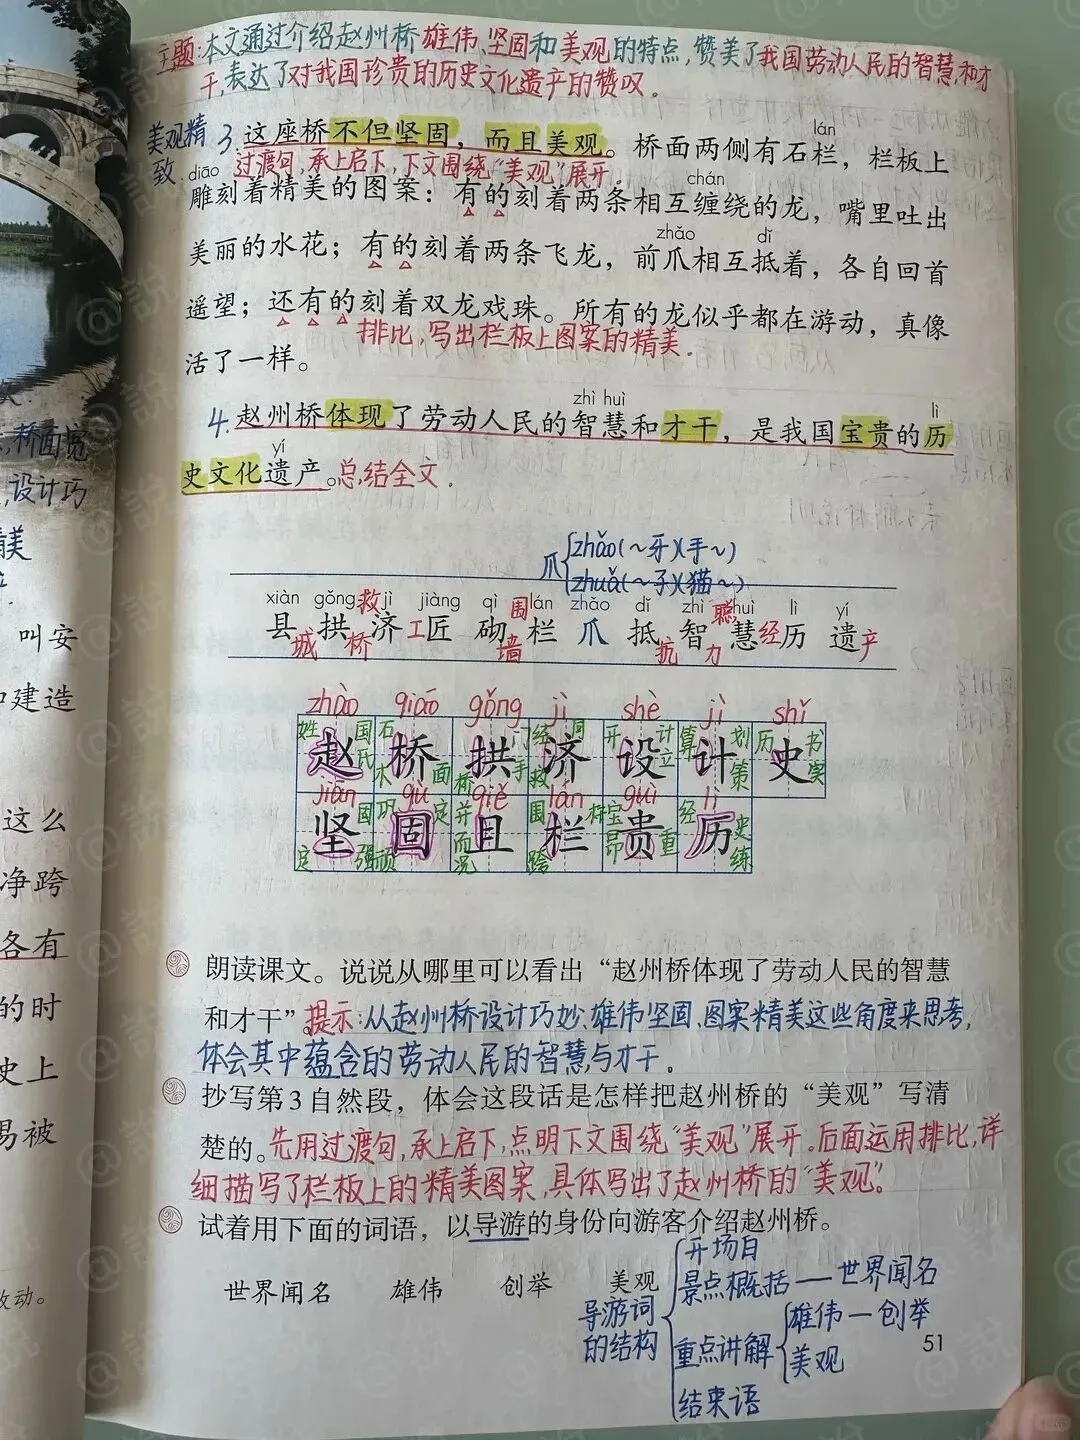 主题:本文通过介绍赵州桥雄伟、坚固和美观的特点,赞美了我国劳动人民的智慧和才
干,表达了对我国珍贵的历史文化遗产的赞叹。
美观精
致
3.这座桥不但坚固,而且美观。桥面两侧有石栏,栏板上
lán
过渡句,承上启下,下文围绕“美观”展开.
diāo
chán
雕刻着精美的图案:有的刻着两条相互缠绕的龙,嘴里吐出
zhǎo dǐ
美丽的水花;有的刻着两条飞龙,前爪相互抵着,各自回首
遥望;还有的刻着双龙戏珠。所有的龙似乎都在游动,真像
排比,写出栏板上图案的精美.
活了一样。
zhì huì
lì
4.赵州桥体现了劳动人民的智慧和才干,是我国宝贵的历
yí
史文化遗产。总结全文.
爪
zhǎo(~牙)(手~)
zhuǎ(~子)(猫~)
xiàn gǒng jì jiàng qì lán zhǎo dǐ zhì huì lì yí
县 拱 济 匠 砌 栏 爪 抵 智 慧 历 遗
城 桥 救 工 围 墙 抗 力 聪 经 产
zhào qiáo gǒng jì shè jì shǐ
赵 桥 拱 济 设 计 史
jiān gù qiě lán guì lì
坚 固 且 栏 贵 历
朗读课文。说说从哪里可以看出“赵州桥体现了劳动人民的智慧
和才干”。提示:从赵州桥设计巧妙、雄伟坚固、图案精美这些角度来思考,
体会其中蕴含的劳动人民的智慧与才干.
抄写第3自然段,体会这段话是怎样把赵州桥的“美观”写清
楚的。先用过渡句,承上启下,点明下文围绕“美观”展开。后面运用排比,详
细描写了栏板上的精美图案,具体写出了赵州桥的“美观”。
试着用下面的词语,以导游的身份向游客介绍赵州桥。
世界闻名 雄伟 创举 美观
导游词
的结构
开场白
景点概括—世界闻名
重点讲解
雄伟—创举
美观
结束语
51
桥面宽
设计巧
精美
叫安
和建造
这么
净跨
各有
的时
史上
易被
改动。